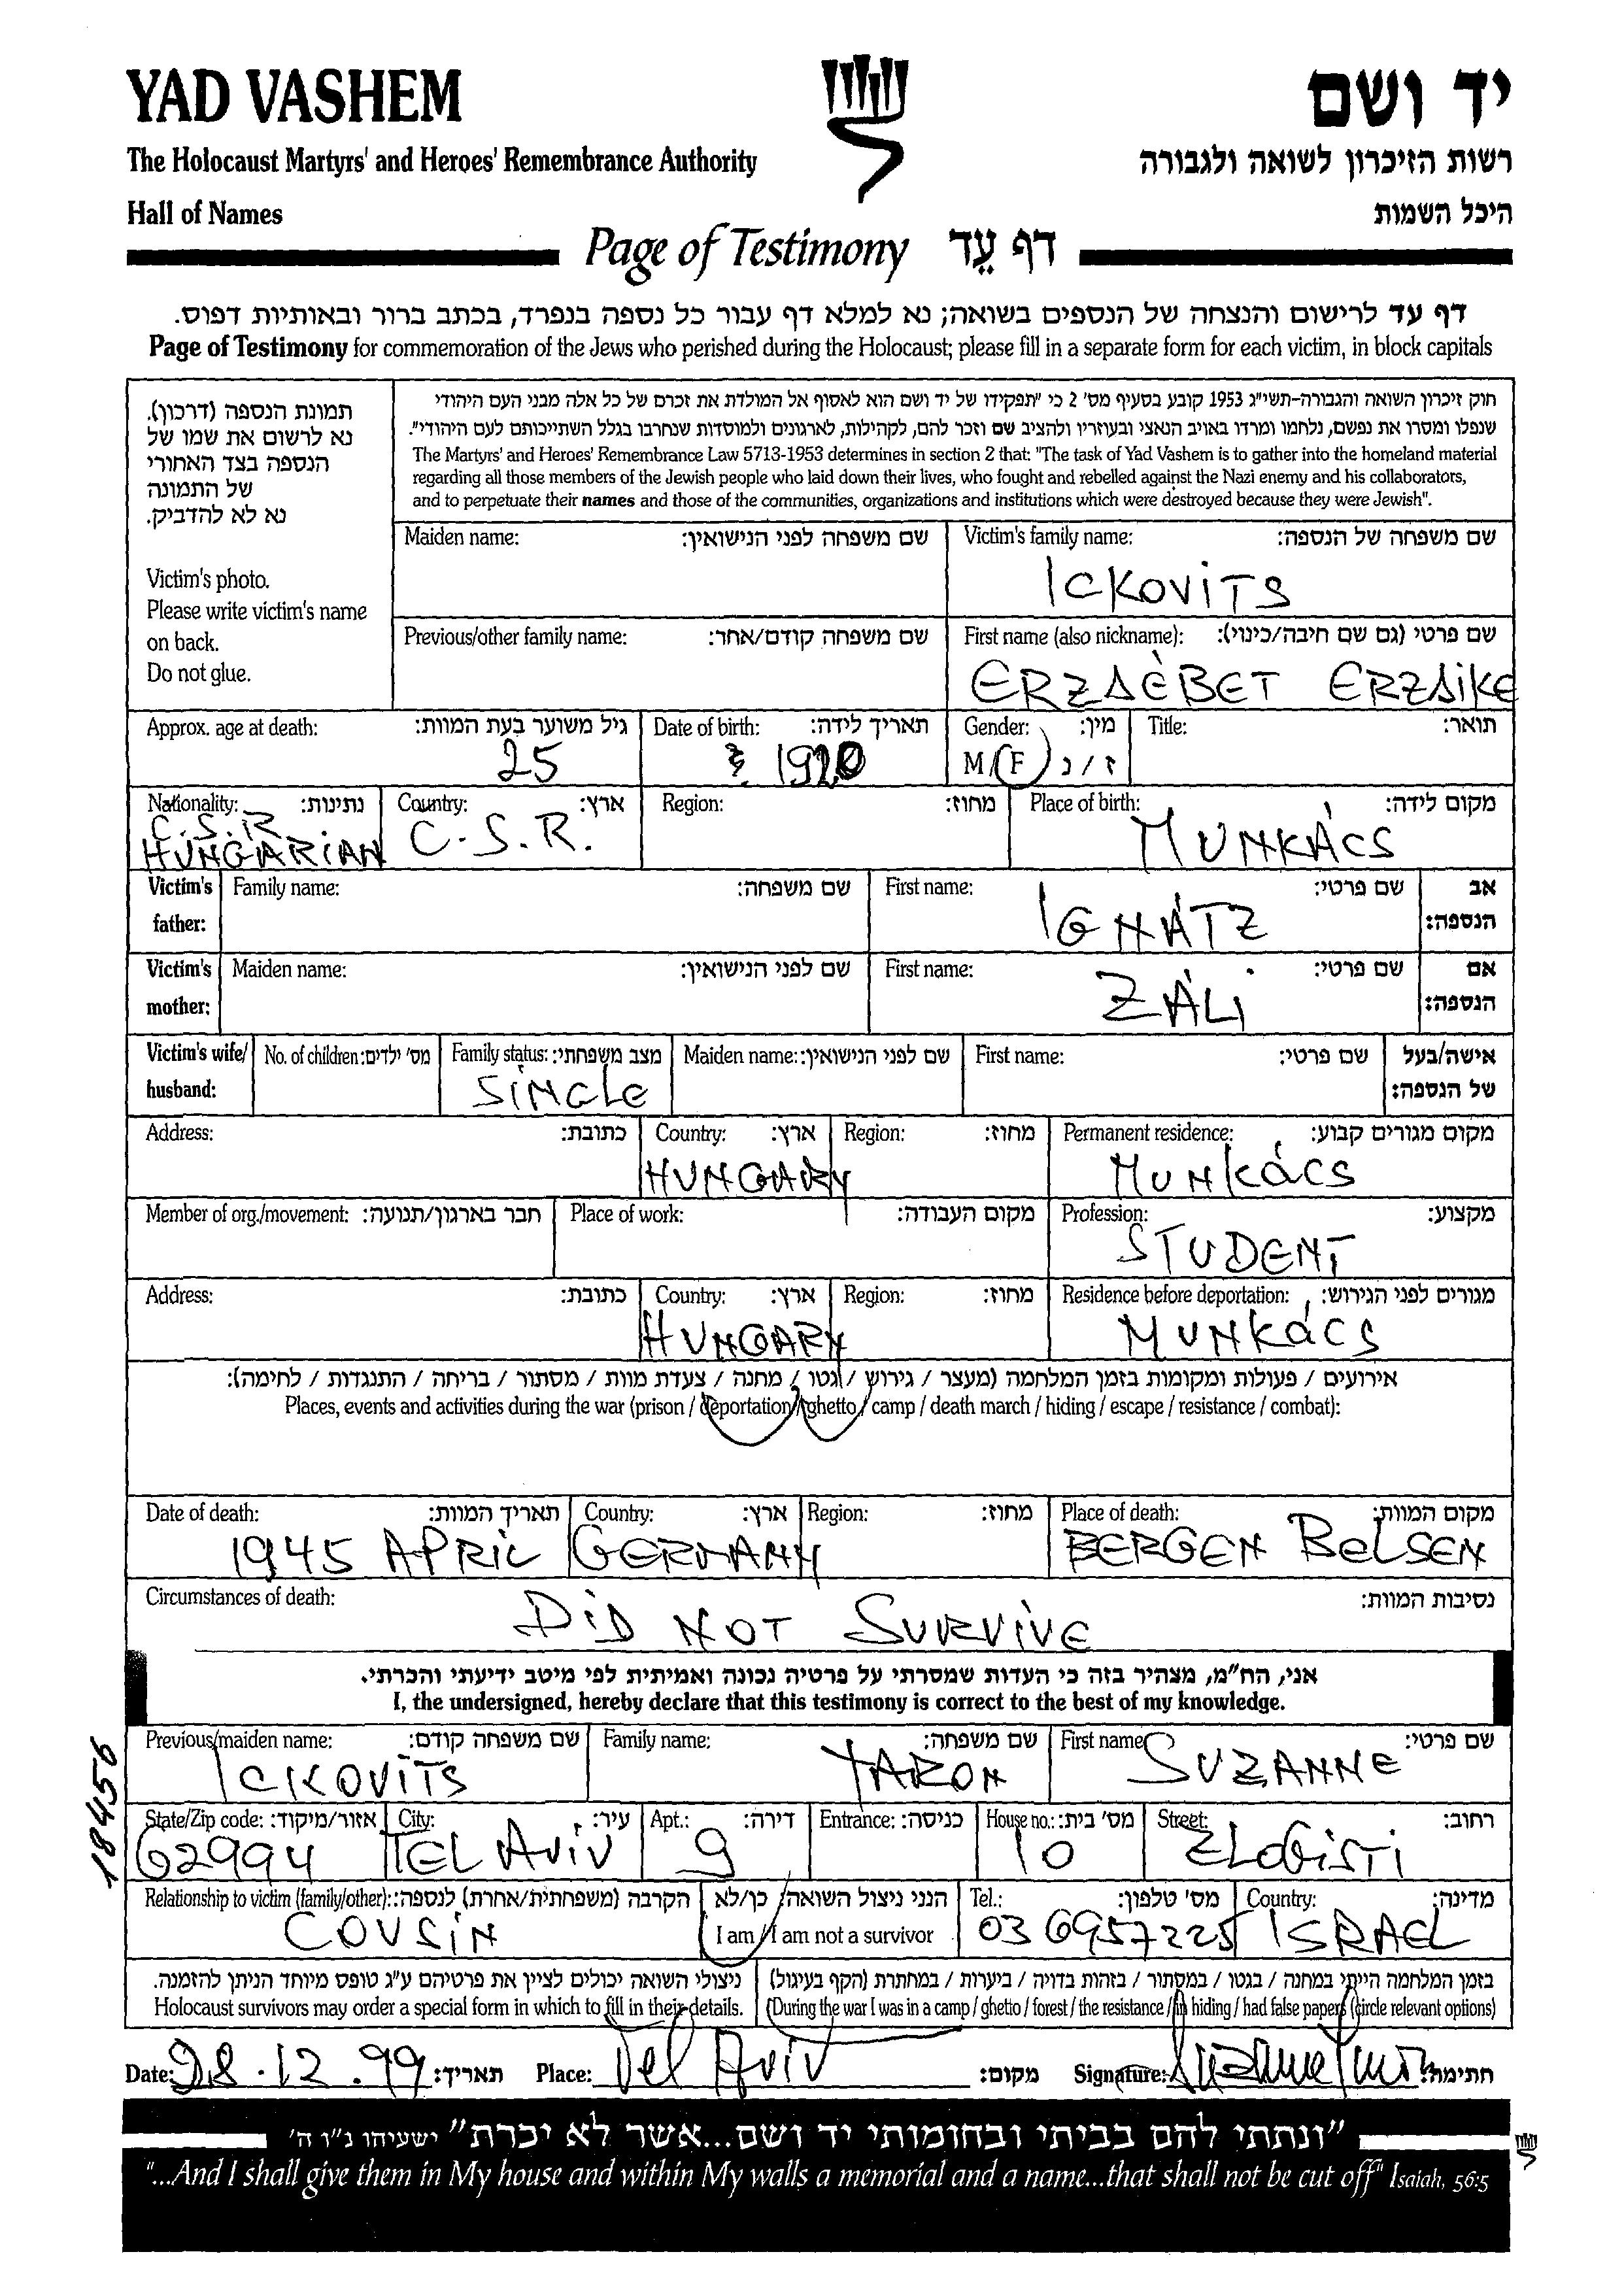 YAD VASHEM
יד ושם
The Holocaust Martyrs' and Heroes' Remembrance Authority
רשות הזיכרון לשואה ולגבורה
Hall of Names
היכל השמות
Page of Testimony דף עֵד
דף עד לרישום והנצחה של הנספים בשואה; נא למלא דף עבור כל נספה בנפרד, בכתב ברור ובאותיות דפוס.
Page of Testimony for commemoration of the Jews who perished during the Holocaust; please fill in a separate form for each victim, in block capitals
תמונת הנספה (דרכון).
נא לרשום את שמו של
הנספה בצד האחורי
של התמונה
נא לא להדביק.
Victim's photo.
Please write victim's name
on back.
Do not glue.
חוק זיכרון השואה והגבורה-תשי"ג 1953 קובע בסעיף מס' 2 כי "תפקידו של יד ושם הוא לאסוף אל המולדת את זכרם של כל אלה מבני העם היהודי
שנפלו ומסרו את נפשם, נלחמו ומרדו באויב הנאצי ובעוזריו ולהציב שם וזכר להם, לקהילות, לארגונים ולמוסדות שנחרבו בגלל השתייכותם לעם היהודי".
The Martyrs' and Heroes' Remembrance Law 5713-1953 determines in section 2 that: "The task of Yad Vashem is to gather into the homeland material
regarding all those members of the Jewish people who laid down their lives, who fought and rebelled against the Nazi enemy and his collaborators,
and to perpetuate their names and those of the communities, organizations and institutions which were destroyed because they were Jewish".
Maiden name: שם משפחה לפני הנישואין:
Victim's family name: שם משפחה של הנספה:
ICKOVITS
Previous/other family name: שם משפחה קודם/אחר:
First name (also nickname): שם פרטי (גם שם חיבה/כינוי):
ERZSÈBET ERZSIKE
Approx. age at death: גיל משוער בעת המוות:
25
Date of birth: תאריך לידה:
1920
Gender: מין:
M / F ז / נ
Title: תואר:
Nationality: נתינות:
C.S.R.
HUNGARIAN
Country: ארץ:
C.S.R.
Region: מחוז:
Place of birth: מקום לידה:
MUNKÁCS
Victim's father: Family name: שם משפחה:
First name: שם פרטי: אב הנספה:
IGNÁTZ
Victim's mother: Maiden name: שם לפני הנישואין:
First name: שם פרטי: אם הנספה:
ZÁLI
Victim's wife/ husband: No. of children: מס' ילדים:
Family status: מצב משפחתי:
SINGLE
Maiden name: שם לפני הנישואין:
First name: שם פרטי: אישה/בעל של הנספה:
Address: כתובת:
Country: ארץ:
HUNGARY
Region: מחוז:
Permanent residence: מקום מגורים קבוע:
MUNKÁCS
Member of org./movement: חבר בארגון/תנועה:
Place of work: מקום העבודה:
Profession: מקצוע:
STUDENT
Address: כתובת:
Country: ארץ:
HUNGARY
Region: מחוז:
Residence before deportation: מגורים לפני הגירוש:
MUNKÁCS
אירועים / פעולות ומקומות בזמן המלחמה (מעצר / גירוש / גטו / מחנה / צעדת מוות / מסתור / בריחה / התנגדות / לחימה):
Places, events and activities during the war (prison / deportation / ghetto / camp / death march / hiding / escape / resistance / combat):
Date of death: תאריך המוות:
1945 APRIL
Country: ארץ:
GERMANY
Region: מחוז:
Place of death: מקום המוות:
BERGEN BELSEN
Circumstances of death: נסיבות המוות:
DID NOT SURVIVE
אני, הח"מ, מצהיר בזה כי העדות שמסרתי על פרטיה נכונה ואמיתית לפי מיטב ידיעתי והכרתי.
I, the undersigned, hereby declare that this testimony is correct to the best of my knowledge.
Previous/maiden name: שם משפחה קודם:
ICKOVITS
Family name: שם משפחה:
YARON
First name שם פרטי:
SUZANNE
18456
State/Zip code: אזור/מיקוד:
62994
City: עיר:
TEL AVIV
Apt.: דירה:
9
Entrance: כניסה:
House no.: מס' בית:
10
Street: רחוב:
ZLOGISTI
Relationship to victim (family/other): הקרבה (משפחתית/אחרת) לנספה:
COUSIN
הנני ניצול השואה: כן/לא
I am / I am not a survivor
Tel.: מס' טלפון:
03 6957225
Country: מדינה:
ISRAEL
ניצולי השואה יכולים לציין את פרטיהם ע"ג טופס מיוחד הניתן להזמנה.
Holocaust survivors may order a special form in which to fill in their details.
בזמן המלחמה הייתי במחנה / בגטו / במסתור / בזהות בדויה / ביערות / במחתרת (הקף בעיגול)
(During the war I was in a camp / ghetto / forest / the resistance / in hiding / had false papers (circle relevant options)
Date: 28.12.99 תאריך: Place: Tel Aviv מקום: Signature: חתימה:
"ונתתי להם בביתי ובחומותי יד ושם...אשר לא יכרת" ישעיהו נ"ו ה'
"...And I shall give them in My house and within My walls a memorial and a name...that shall not be cut off" Isaiah, 56:5